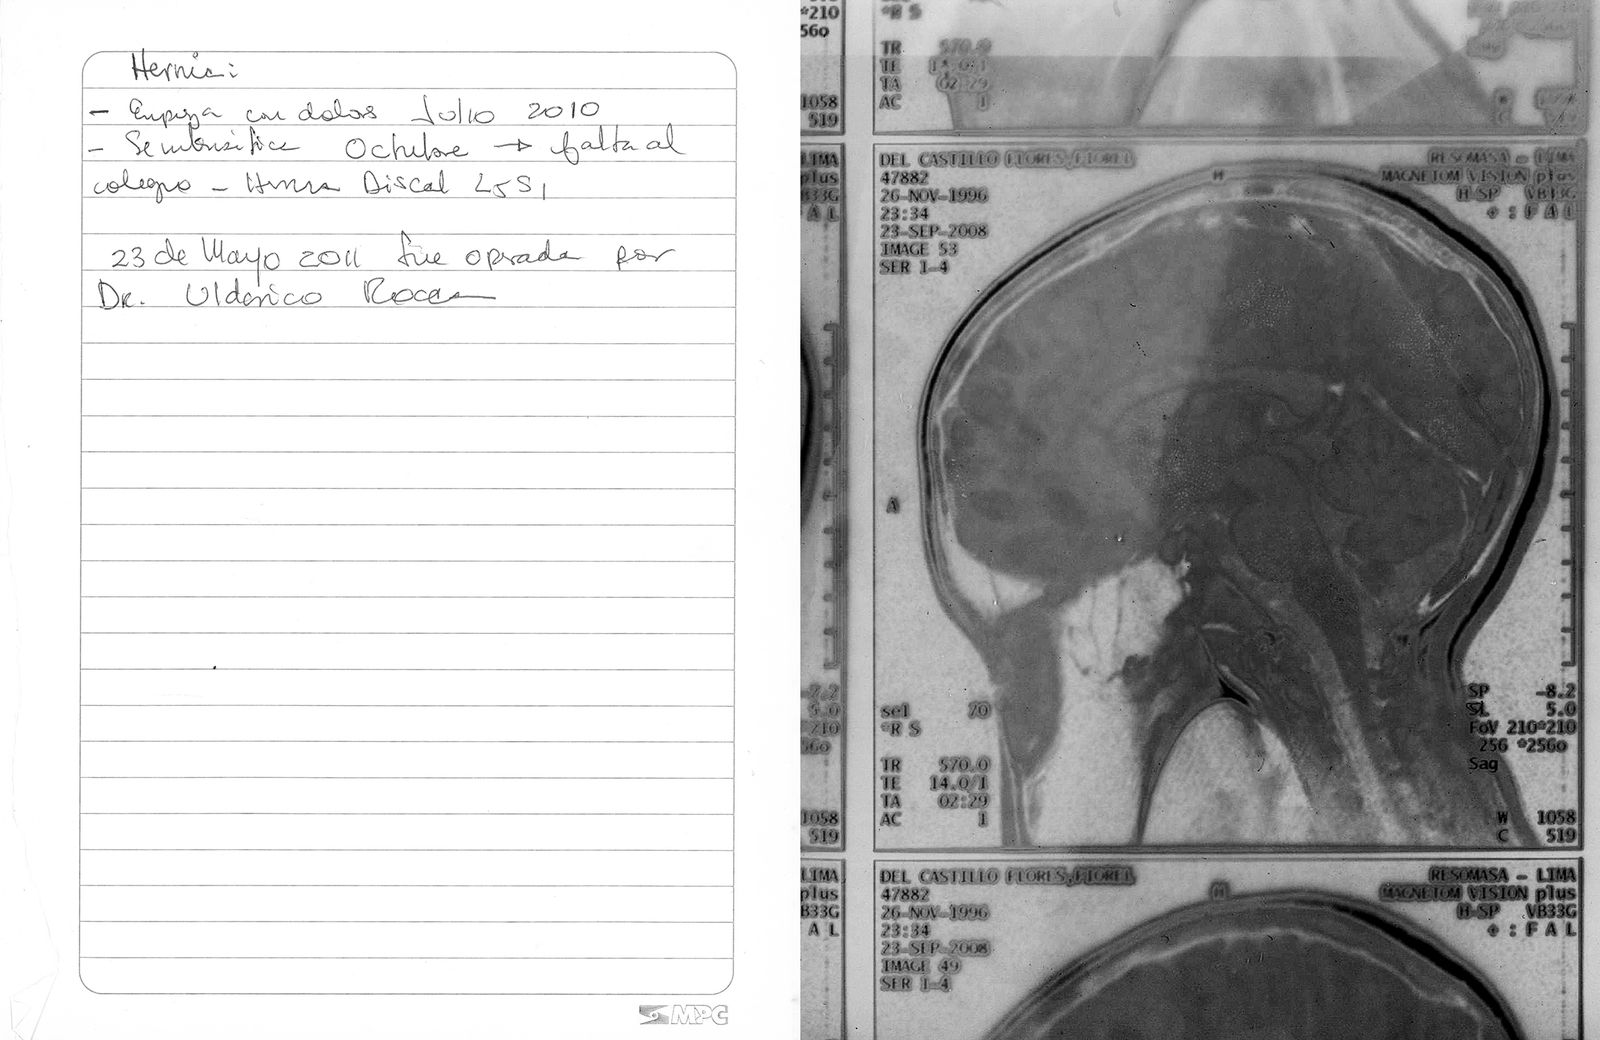 Hernia:
- Empieza con dolor Julio 2010
- Se intensifica Octubre → falta al
colegio - Hernia Discal L5S1
23 de Mayo 2011 fue operada por
Dr. Ulderico Rocca
MPC
*210
256o
1058
519
*R S
TR 570.0
TE 14.0/1
TA 02:29
AC 1
W
C
LIMA
plus
B33G
F A L
-7.2
5.0
*210
256o
1058
519
DEL CASTILLO FLORES,FIOREL
47882
26-NOV-1996
23:34
23-SEP-2008
IMAGE 53
SER 1-4
H
RESOMASA - LIMA
MAGNETOM VISION plus
H-SP VB33G
+ : F A L
A
sel 70
*R S
TR 570.0
TE 14.0/1
TA 02:29
AC 1
SP -8.2
SL 5.0
FoV 210*210
256 *256o
Sag
W 1058
C 519
LIMA
plus
B33G
A L
DEL CASTILLO FLORES,FIOREL
47882
26-NOV-1996
23:34
23-SEP-2008
IMAGE 49
SER 1-4
H
RESOMASA - LIMA
MAGNETOM VISION plus
H-SP VB33G
+ : F A L